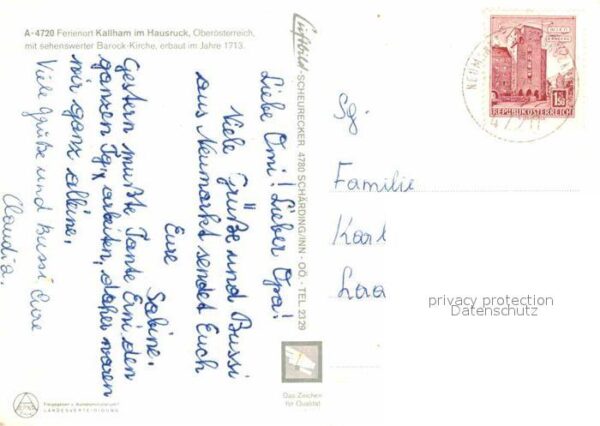 A-4720 Ferienort Kallham im Hausruck, Oberösterreich,
mit sehenswerter Barock-Kirche, erbaut im Jahre 1713.
Liebe Omi! Lieber Opa!
Viele Grüße und Bussi
aus Neumarkt sendet Euch
Eure
Sabine.
Gestern mußte Tante Erni den
ganzen Tg. arbeiten, daher waren
wir ganz alleine.
Viele Grüße und Bussi Eure
Claudia.
Luftbild SCHEURECKER 4780 SCHÄRDING/INN - OÖ - TEL. 23 29
WIEN
1.50
REPUBLIK ÖSTERREICH
Sg.
Familie
Karl
privacy protection
Datenschutz
Das Zeichen
für Qualität
LANDESVERTEIDIGUNG